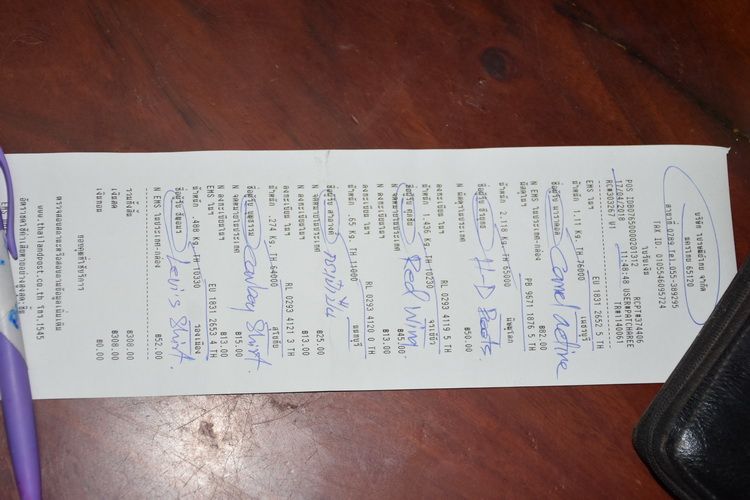 บริษัท ไปรษณีย์ไทย จำกัด
นครไทย 65120
สาขาที่ 0799 Tel.055-389295
TAX ID. 0105546095724
ใบรับเงิน
POS ID#07650000201312 RCPT#374406
17/04/2018 11:48:48 USER#PATCHAREE
RC#303267 W1 TR#1140061
EMS ในฯ EU 1831 2652 5 TH
น้ำหนัก 1.11 Kg. TH-76000 เพชรบุรี
ชื่อผู้รับ Camel active
N EMS ในประเทศ-กล่อง ฿82.00
พัสดุในฯ PB 9671 1876 5 TH
น้ำหนัก 2.118 Kg. TH-65000 พิษณุโลก
ชื่อผู้รับ H-D Boots.
N พัสดุในประเทศ ฿50.00
ลงทะเบียน ในฯ RL 0293 4119 5 TH
น้ำหนัก 1.436 Kg. TH-10230
ชื่อผู้รับ Red Wing
N จดหมายในประเทศ ฿45.00
N ลงทะเบียนในฯ ฿13.00
ลงทะเบียน ในฯ RL 0293 4120 0 TH
น้ำหนัก .65 Kg. TH-11000 นนทบุรี
ชื่อผู้รับ
N จดหมายในประเทศ ฿25.00
N ลงทะเบียนในฯ ฿13.00
ลงทะเบียน ในฯ RL 0293 4121 3 TH
น้ำหนัก .274 Kg. TH-64000 สุโขทัย
ชื่อผู้รับ Cowboy Shirt.
N จดหมายในประเทศ ฿15.00
N ลงทะเบียนในฯ ฿13.00
EMS ในฯ EU 1831 2653 4 TH
น้ำหนัก .488 Kg. TH-10330
ชื่อผู้รับ Levi's Shirt.
N EMS ในประเทศ-กล่อง ฿52.00
รวมทั้งสิ้น ฿308.00
เงินสด ฿308.00
เงินทอน ฿0.00
ขอบคุณที่ใช้บริการ
www.thailandpost.co.th โทร.1545